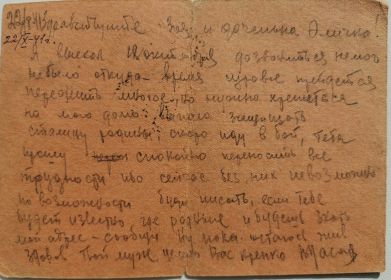 22/X-41г. Здравствуйте Зоя и доченька Эллочка
22/X-41г.
А выехал дозвониться не мог
не было откуда время суровое придется
пережить многое, но нужно крепиться
на мою долю защищать
столицу родины, скоро иду в бой, тебя
прошу спокойно переносить все
трудности ибо сейчас без них невозможно
по возможности буду писать, если тебе
будет известно где родные и будешь знать
мой адрес - сообщи Ну пока остаюсь жив
здоров Твой муж целую Вас крепко